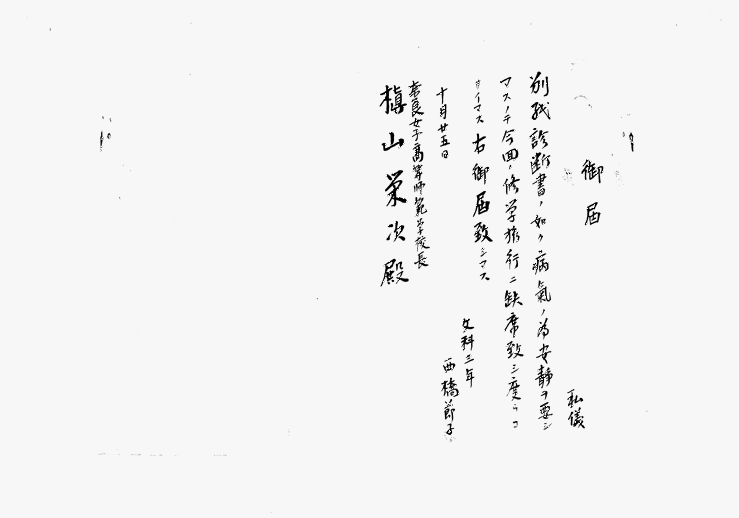 御届
私儀
別紙診断書ノ如ク病氣ノ為安静ヲ要シ
マスノデ今回ノ修学旅行ニ缺席致シ度ウゴ
ザイマス右御届致シマス
十月廿五日
文科三年
西橋節子
奈良女子高等師範学校長
槇山栄次殿